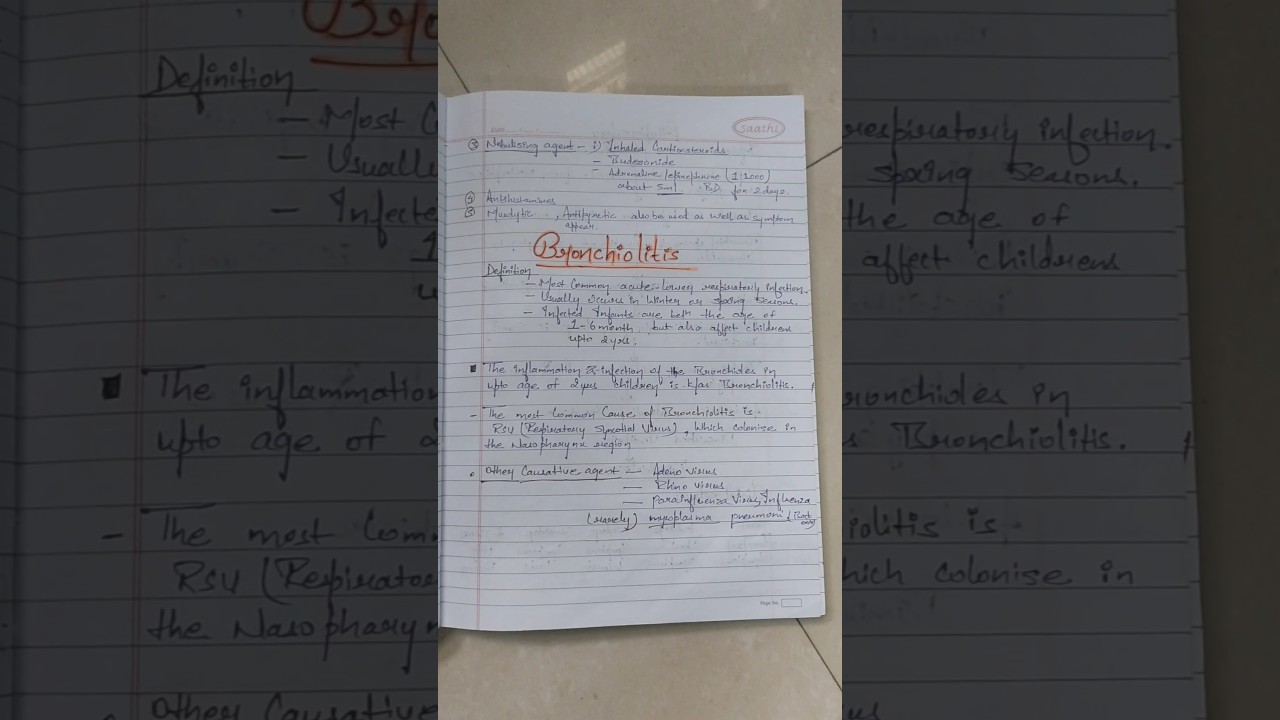 saathi
Date
③ Nebulising agent - i) Inhaled Corticosteroids
- Budesonide
- Adrenaline/epinephrine (1:1000)
about 5ml B.D. for 2 days.
④ Antihistamines
⑤ Mucolytic, Antipyretic also be used as well as symptom
appear.
Bronchiolitis
Definition
- Most Common acute lower respiratory infection.
- Usually occurs in Winter or spring seasons.
- Infected Infants are beth the age of
1-6 month but also affect childrens
upto 2 yrs.
The inflammation & infection of the Bronchioles in
upto age of 2yrs children is k/as Bronchiolitis.
- The most Common Cause of Bronchiolitis is.
RSV (Respiratory Syncotial Virus), Which colonise in
the Nasopharynx region
• Other Causative agent — Adeno virus
— Rhino virus
— parainfluenza Virus, Influenza
(rarely) mycoplasma pneumoni
Page No.